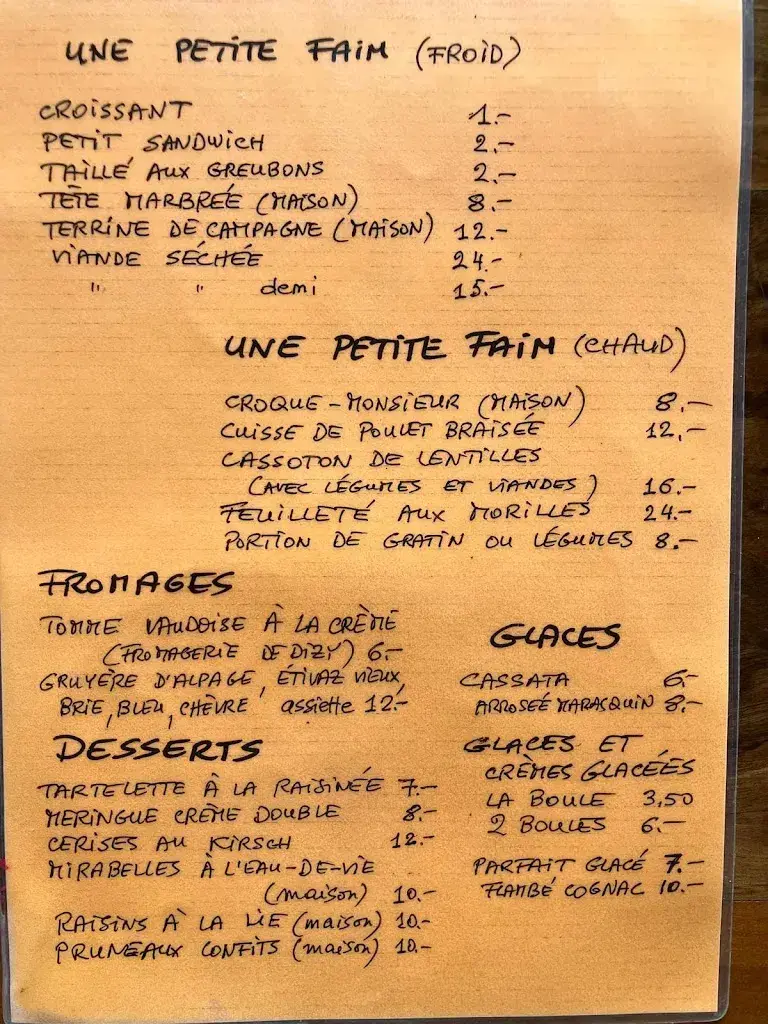 UNE PETITE FAIM (FROID)
CROISSANT 1.-
PETIT SANDWICH 2.-
TAILLÉ AUX GREUBONS 2.-
TÊTE MARBRÉE (MAISON) 8.-
TERRINE DE CAMPAGNE (MAISON) 12.-
VIANDE SÉCHÉE 24.-
" " demi 15.-
UNE PETITE FAIM (CHAUD)
CROQUE-MONSIEUR (MAISON) 8.-
CUISSE DE POULET BRAISÉE 12.-
CASSOTON DE LENTILLES
(AVEC LÉGUMES ET VIANDES) 16.-
FEUILLETÉ AUX MORILLES 24.-
PORTION DE GRATIN OU LÉGUMES 8.-
FROMAGES
TOMME VAUDOISE À LA CRÈME
(FROMAGERIE DE DIZY) 6.-
GRUYÈRE D'ALPAGE, ÉTIVAZ VIEUX,
BRIE, BLEU, CHÈVRE assiette 12.-
DESSERTS
TARTELETTE À LA RAISINÉE 7.-
MERINGUE CRÈME DOUBLE 8.-
CERISES AU KIRSCH 12.-
MIRABELLES À L'EAU-DE-VIE
(maison) 10.-
RAISINS À LA LIE (maison) 10.-
PRUNEAUX CONFITS (maison) 10.-
GLACES
CASSATA 6.-
ARROSÉE MARASQUIN 8.-
GLACES ET
CRÈMES GLACÉES
LA BOULE 3,50
2 BOULES 6.-
PARFAIT GLACÉ 7.-
FLAMBÉ COGNAC 10.-